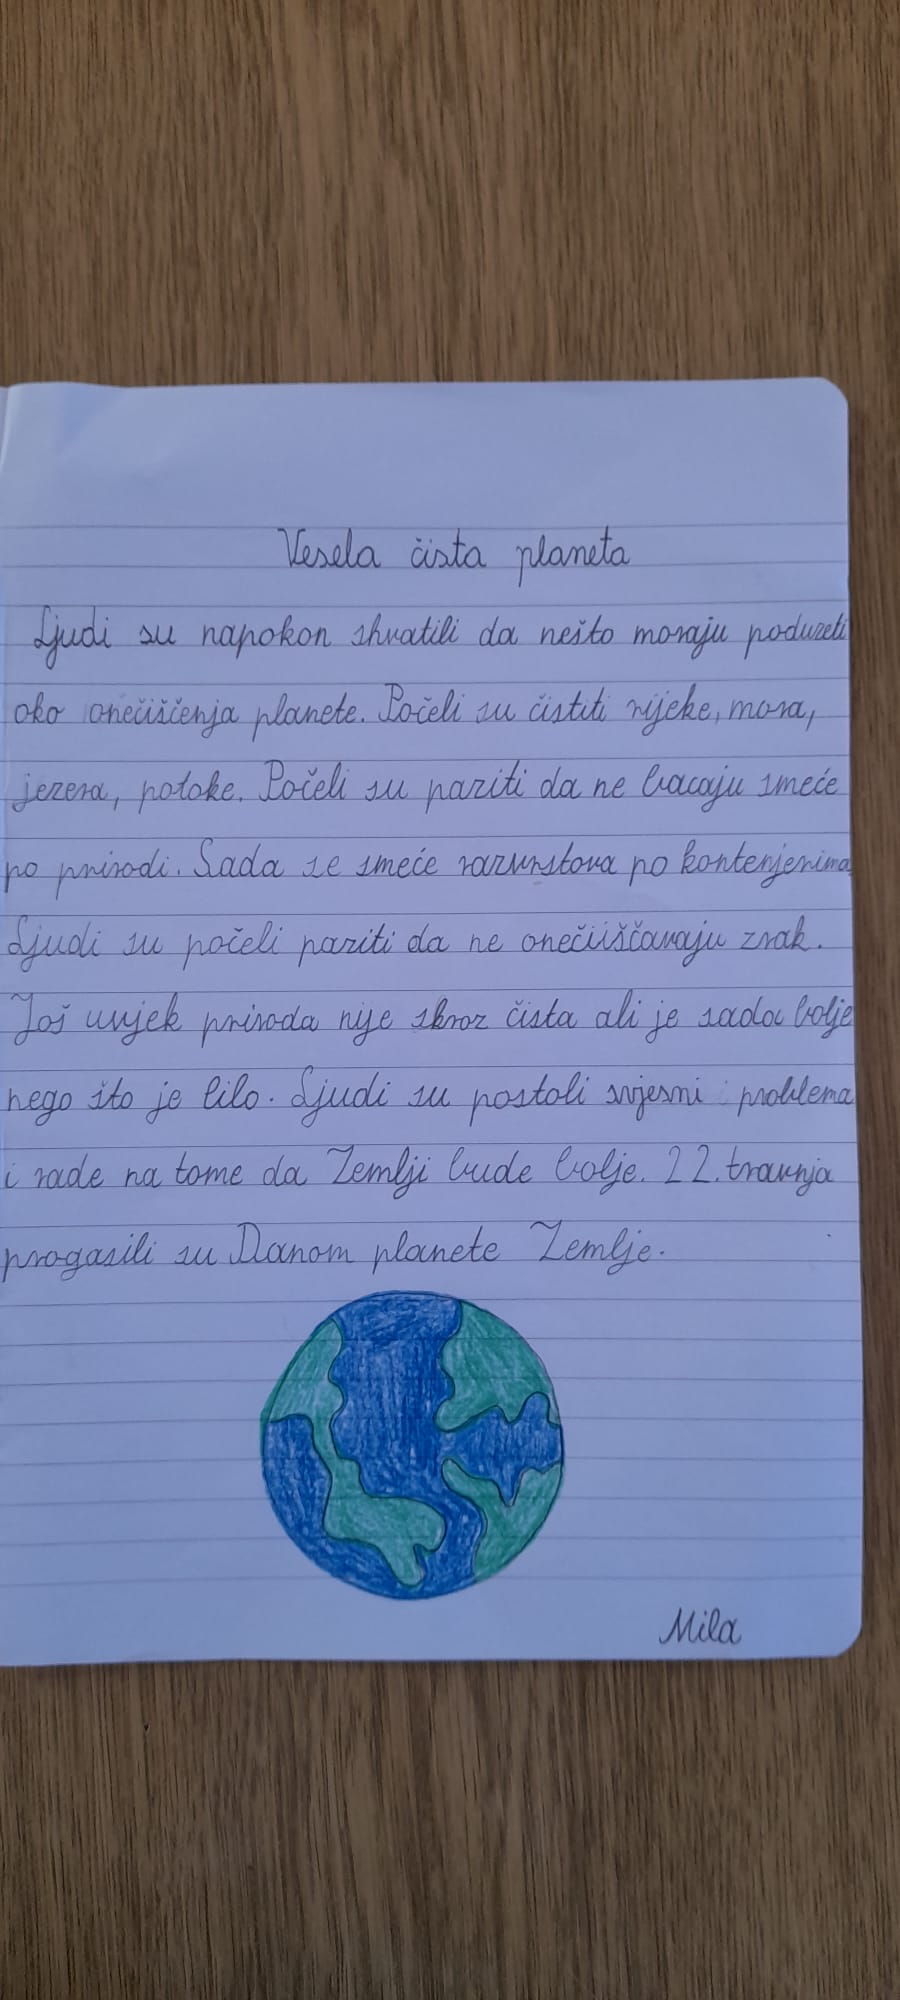 Vesela čista planeta
Ljudi su napokon shvatili da nešto moraju poduzeti
oko onečiščenja planete. Počeli su čistiti rijeke, mora,
jezera, potoke. Počeli su paziti da ne bacaju smeće
po prirodi. Sada se smeće razvrstava po kontenjenima
Ljudi su počeli paziti da ne onečiiščavaju zrak.
Još uvjek priroda nije skroz čista ali je sada bolje
nego što je bilo. Ljudi su postali svjesni problema
i rade na tome da Zemlji bude bolje. 22. travnja
progasili su Danom planete Zemlje.
Mila